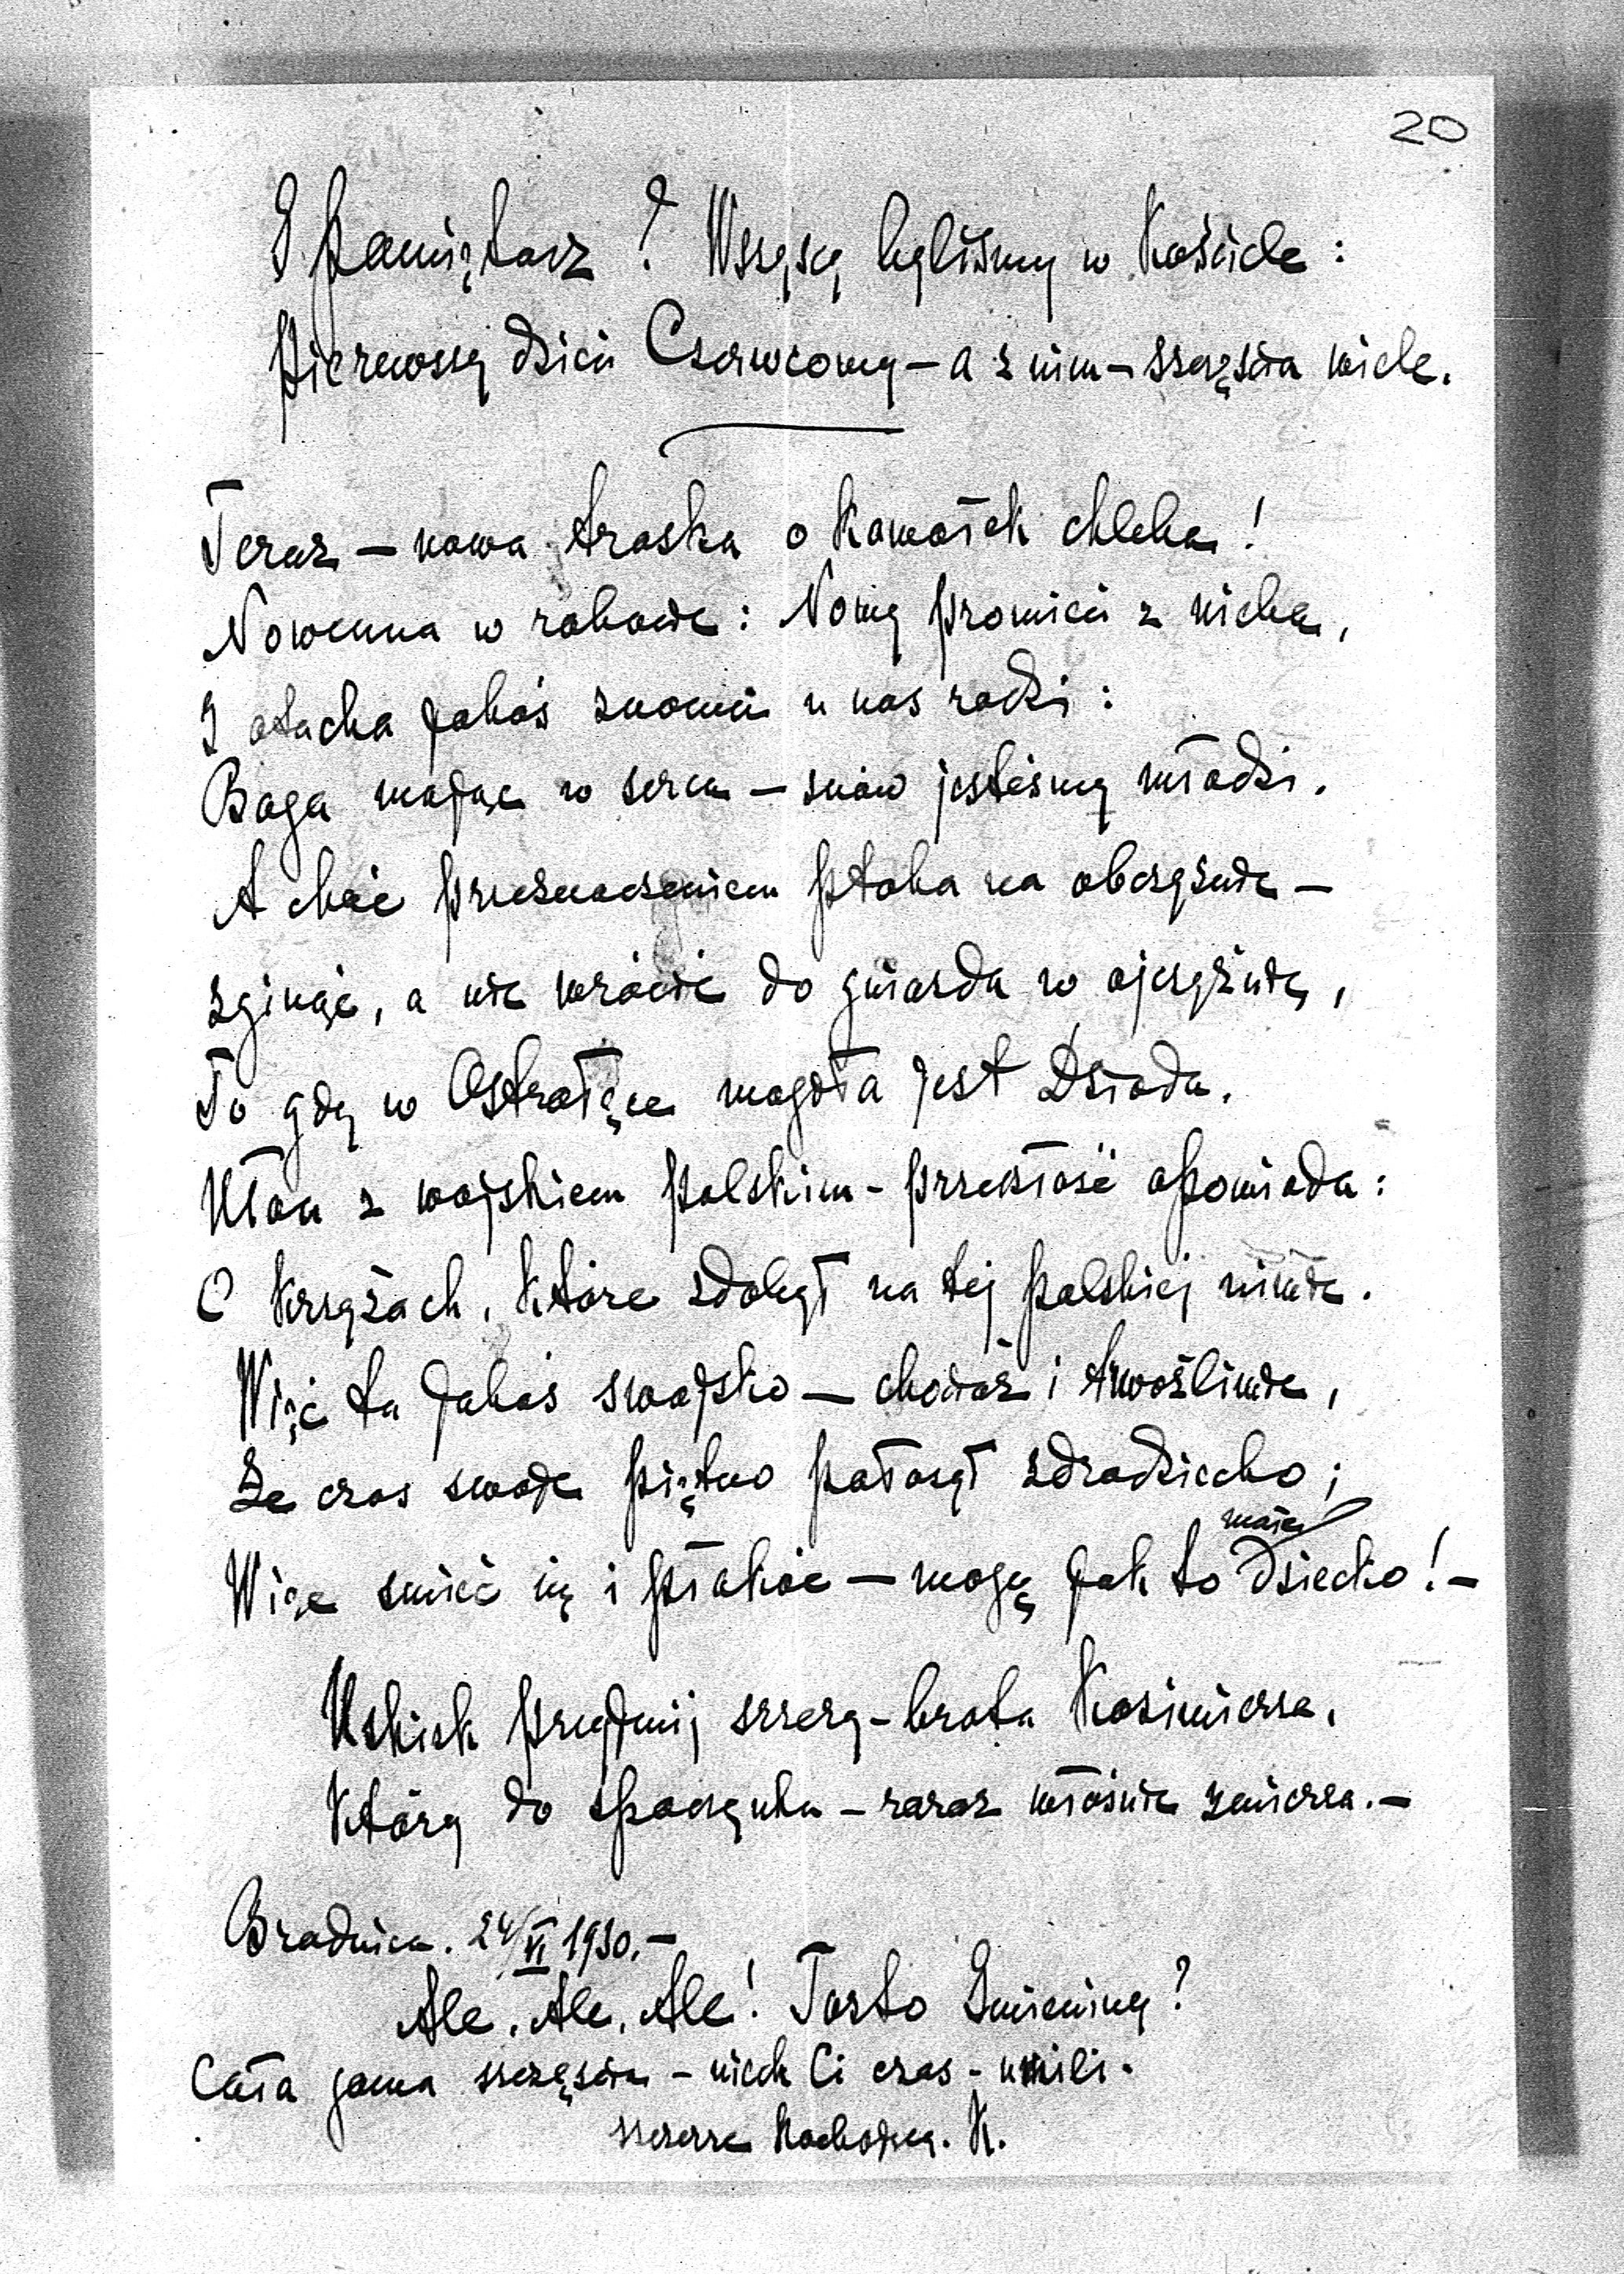 20
I pamiętasz? Wszyscy byliśmy w Kościele:
Pierwszy dzień Czerwcowy – a z nim – szczęścia wiele.
Teraz – nowa troska o kawałek chleba!
Nowenna w robocie: Nowy promień z nieba,
I otucha jakoś znowu u nas rodzi:
Boga mając w sercu – znów jesteśmy młodzi.
A choć przeznaczeniem ptaka na obczyźnie –
zginąć, a nie wrócić do gniazda w ojczyźnie,
To gdy w Ostrołęce mogiła jest Dziada,
Ułan z wojskiem polskim – przeszłość opowiada:
O Krzyżach, które zdobył na tej polskiej niwie.
Więc tu jakoś swojsko – chociaż i trwożliwie,
Że czas swoje piętno położył zdradziecko;
Więc śmieć się i płakać – mogę jak to małe dziecko! –
Uścisk przyjmij szczery – brata Kazimierza,
Który do spoczynku – zaraz właśnie zmierza. –
Brodnica. 24/VI 1930. –
Ale, Ale, Ale! Toś to Imieniny?
Cała gama szczęścia – niech Ci czas – umili.
szczerze Kochający. K.